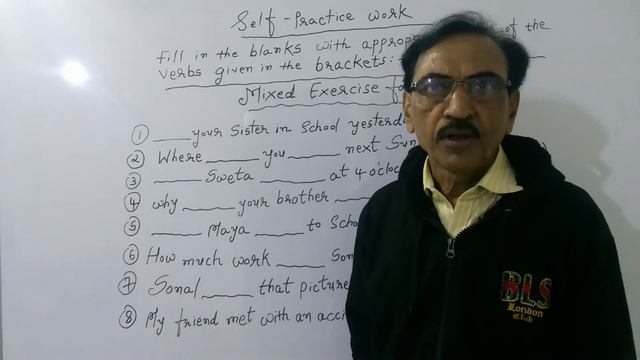 Self-Practice work
Fill in the blanks with of the
verbs given in the brackets:
Mixed Exercise
① ____ your Sister in School
② Where ____ you ____ next
③ ____ Sweta ____ at 4 o'cloc
④ why ____ your brother ____
⑤ ____ Maya ____ to Scho
⑥ How much work ____ Son
⑦ Sonal ____ that picture
⑧ My friend met with an acci
BLS
London
Club